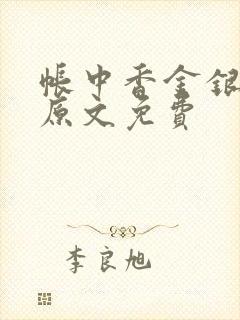 帐中香金银
原文免费
李良旭